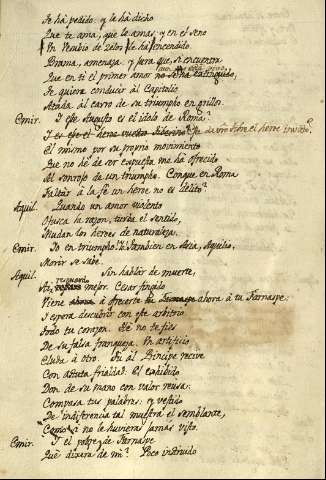 Se há pedido. y le há dicho
Que te ama, que le amas; y en el seno
Un Vesubio de Zelos le há encendido.
Brama, amenaza, y para que se encuentra
Que en ti el primer amor no se há extinguido,
Te quiere conducir al Capitolio
Atada al carro de su triumpho en grillos.
Emir. I ese Augusto es el idolo de Roma?
I es ese el heroe vuestro el heroe invicto?
El mismo por su proprio movimiento
Que no hé de ser expuesta me há ofrecido
Al sonrojo de un triumpho. Conque en Roma
Faltar à la fé un heroe no es delito?
Aquil. Quando un amor violento
Ofusca la razon, turba el sentido,
Mudan los heroes de naturaleza.
Emir. Yo en triumpho? Tambien en Asia, Aquilio,
Morir se sabe.
Aquil. Sin hablar de muerte,
resguardo
Ay mejor. Cesar fingido
Viene à ofrecerte ahora à tu Farnaspe:
I espera descubrir con ese arbitrio
Todo tu corazon. Hé no te fies
De su falsa franqueza. Un artificio
Eluda à otro. Tu al Principe recive
Con astuta frialdad. El exhibido
Don de su mano con valor reusa:
Compasa tus palabras: y vestido
De indiferencia tal muestra el semblante,
Como si no le huviera jamas visto.
Emir. I el pobre de Farnaspe
Qué dixera de mi? Poco instruido